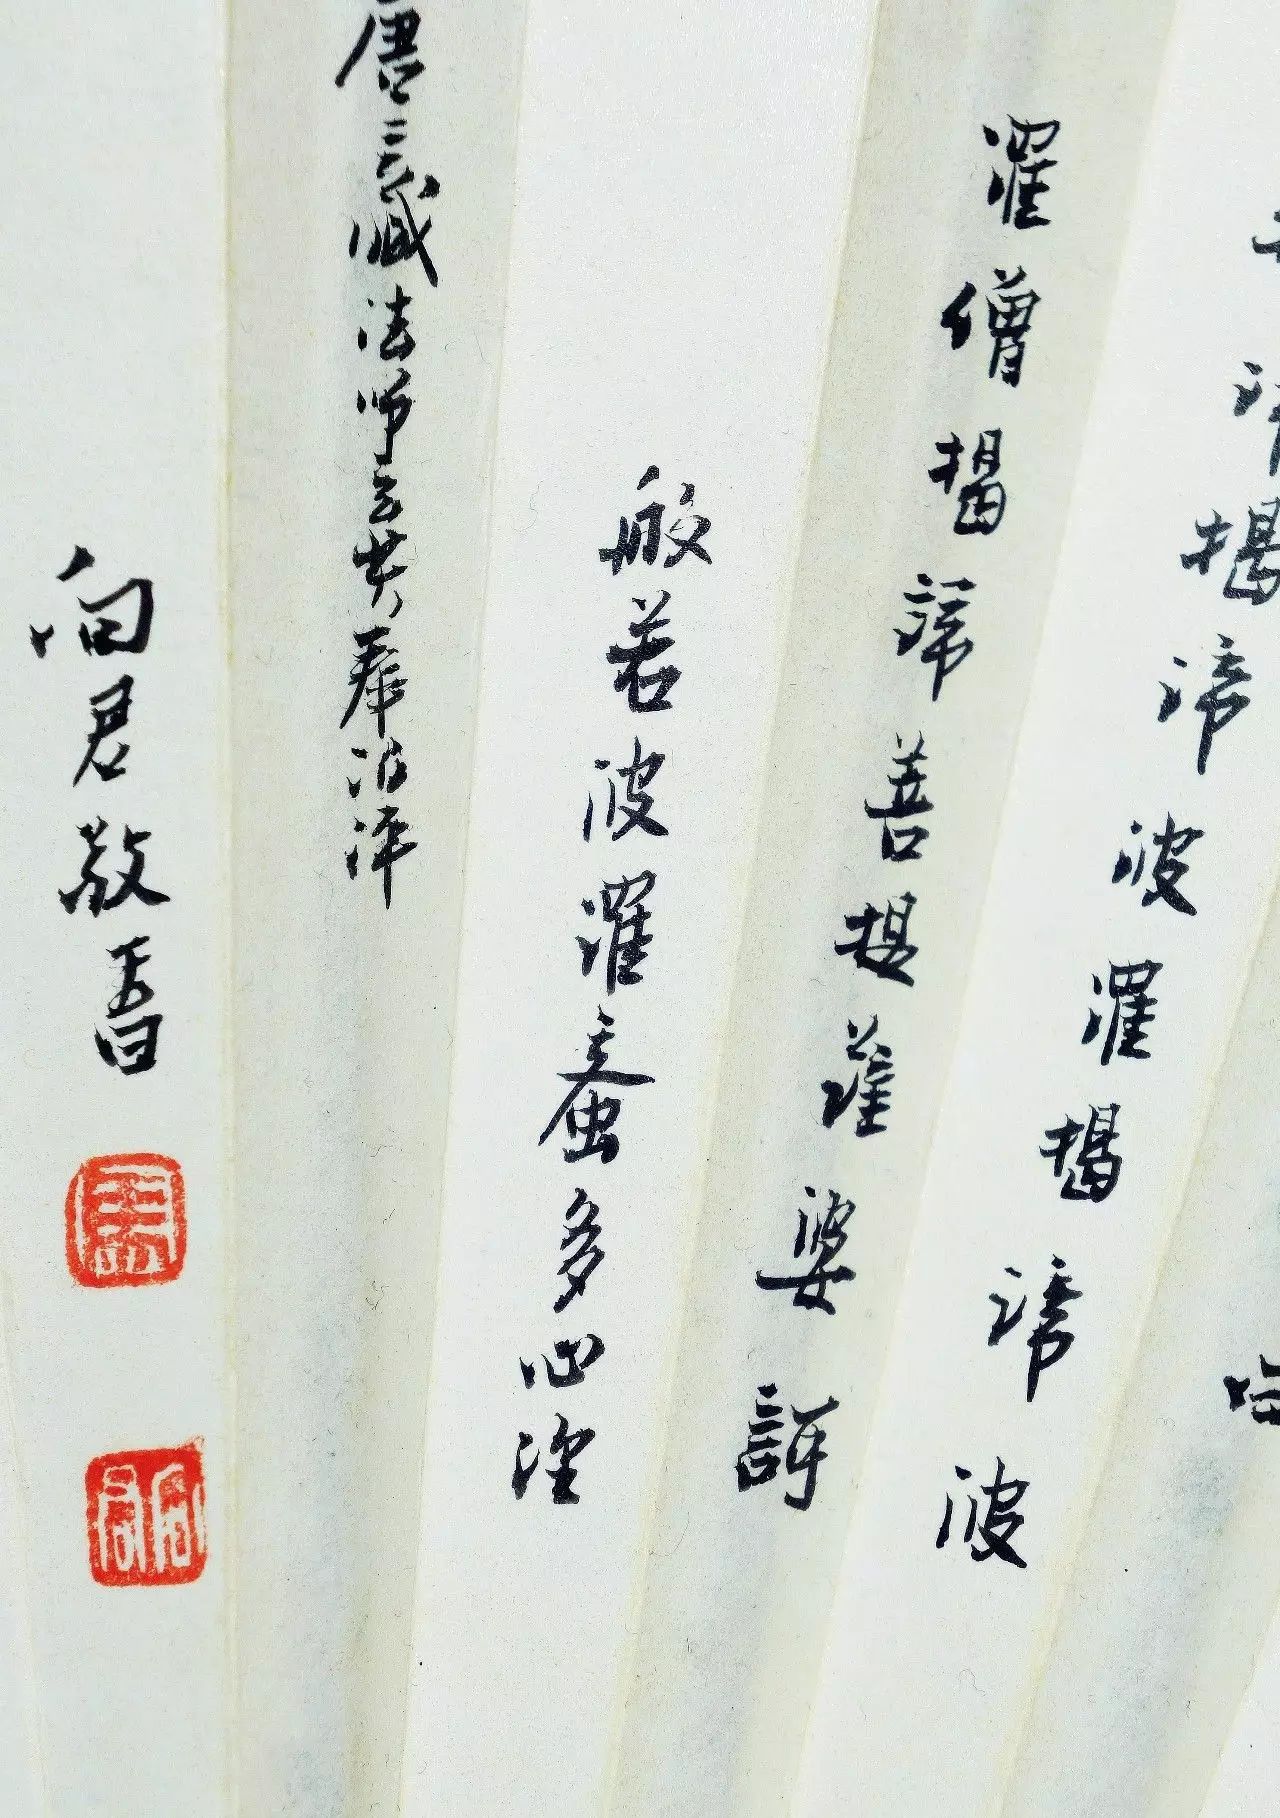 揭諦波羅揭諦波
羅僧揭諦菩提薩婆訶
般若波羅蜜多心經
唐三藏法師玄奘奉詔譯
向君敬書